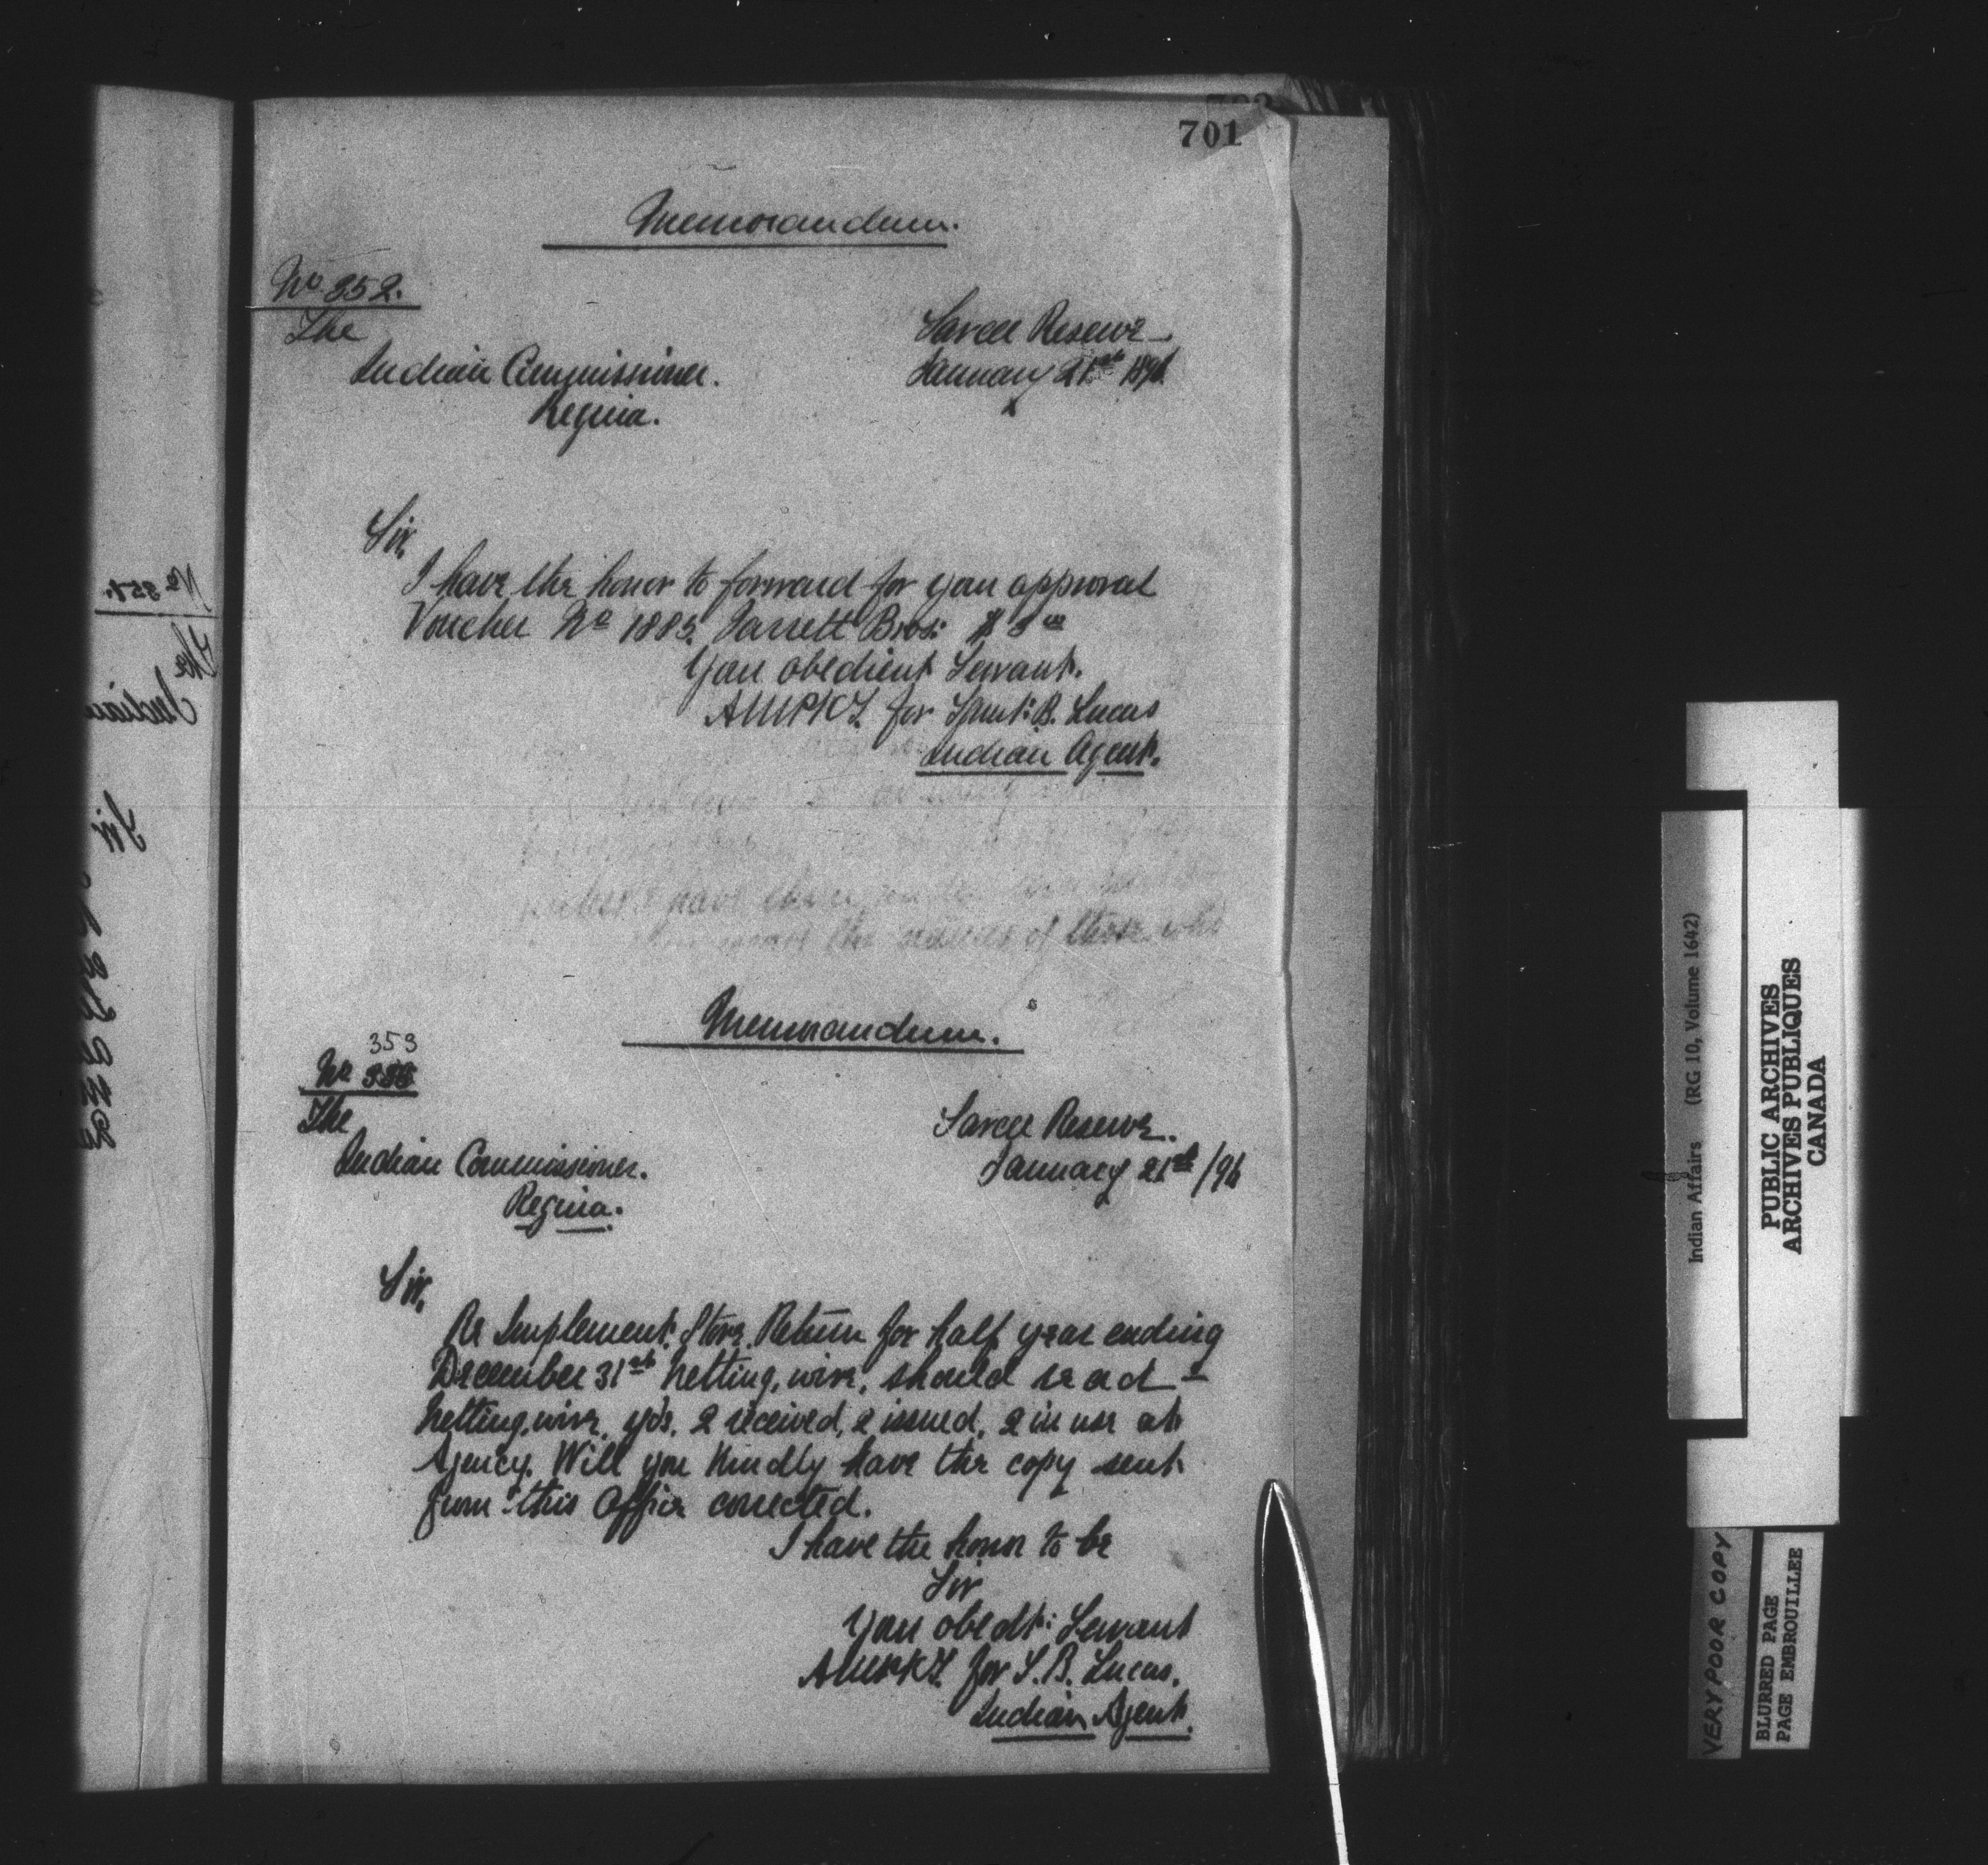 701
Memorandum.
No. 352.
The
Sarcee Reserve
Indian Commissioner.
January 21st 1896
Regina.
Sir,
I have the honor to forward for your approval
Voucher No 1885. Jarrett Bros: $ 3 00
Your obedient Servant.
for Saml: B. Lucas
Indian Agent.
have
the names of those who
Memorandum.
353
No
The
Sarcee Reserve.
Indian Commissioner.
January 21st /96
Regina.
Sir,
Re Implement Store Return for half year ending
December 31st netting, wire, should read -
netting, wire, yds, 2 received, 2 issued, 2 in use at
Agency. Will you kindly have the copy sent
from this Office corrected.
I have the honor to be
Sir
Your obedt: Servant
for S. B. Lucas.
Indian Agent.
No 351.
The
Indian
Sir
Indian Affairs (RG 10, Volume 1642)
PUBLIC ARCHIVES
ARCHIVES PUBLIQUES
CANADA
VERY POOR COPY
BLURRED PAGE
PAGE EMBROUILLEE